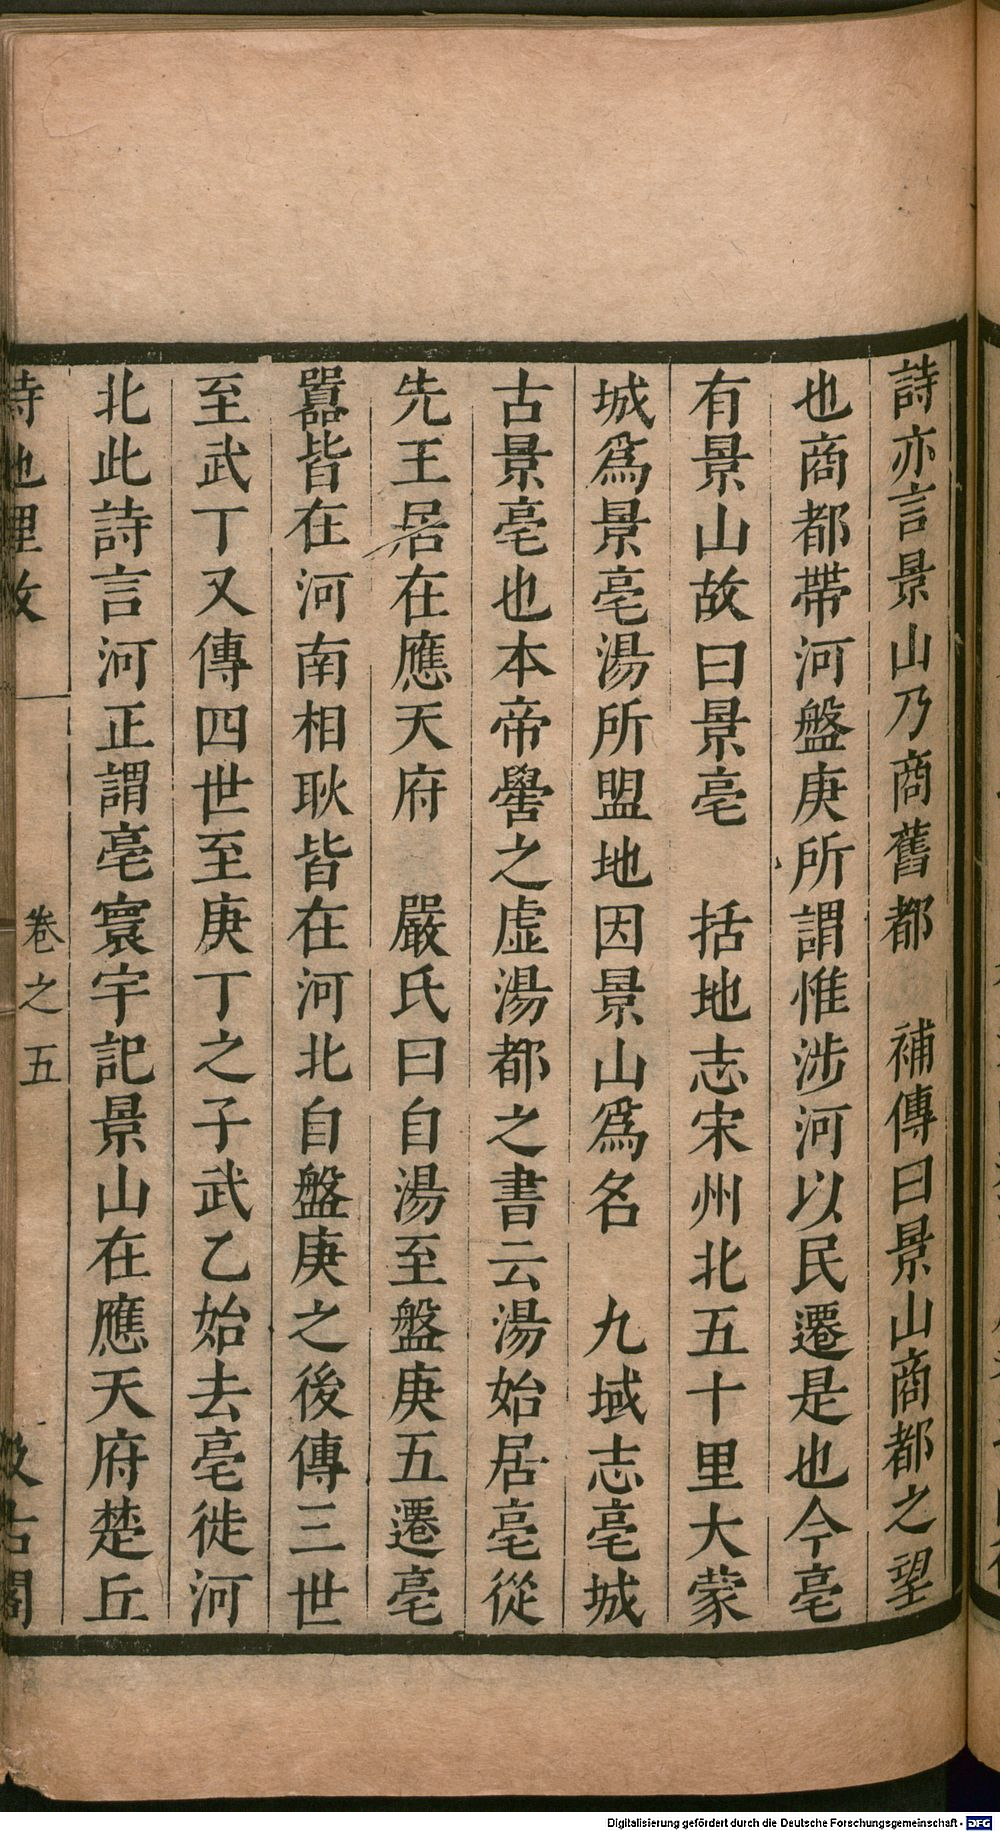 詩亦言景山乃商舊都　補傳曰景山商都之望
也商都帶河盤庚所謂惟涉河以民遷是也今亳
有景山故曰景亳　括地志宋州北五十里大蒙
城爲景亳湯所盟地因景山爲名　九域志亳城
古景亳也本帝嚳之虛湯都之書云湯始居亳從
先王居在應天府　嚴氏曰自湯至盤庚五遷亳
囂皆在河南相耿皆在河北自盤庚之後傳三世
至武丁又傳四世至庚丁之子武乙始去亳徙河
北此詩言河正謂亳寰宇記景山在應天府楚丘
詩地理攷　卷之五　汲古閣
Digitalisierung gefördert durch die Deutsche Forschungsgemeinschaft - DFG